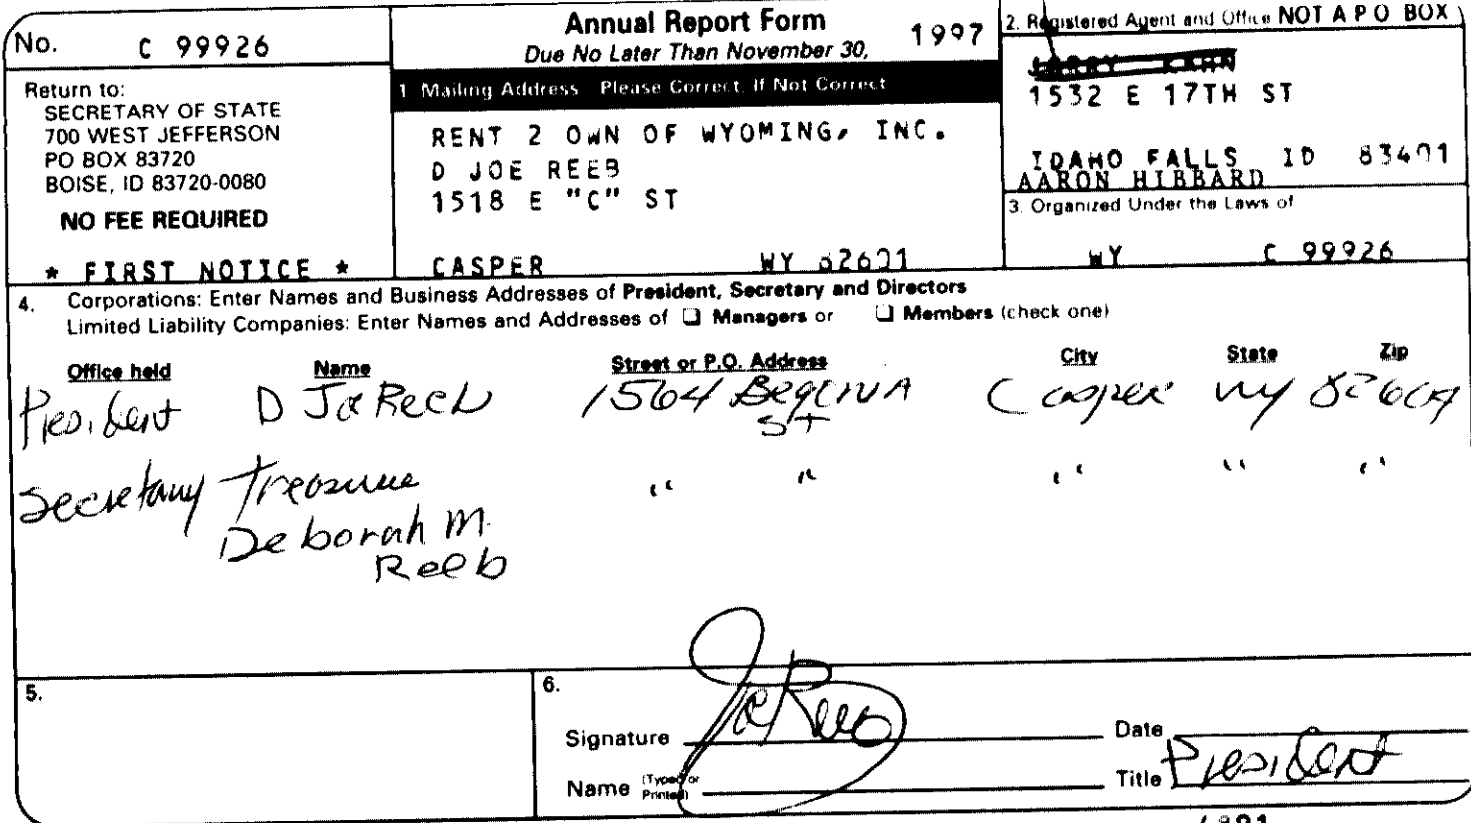 No. C 99926
Return to:
SECRETARY OF STATE
700 WEST JEFFERSON
PO BOX 83720
BOISE, ID 83720-0080
NO FEE REQUIRED
* FIRST NOTICE *
Annual Report Form 1997
Due No Later Than November 30,
1 Mailing Address Please Correct, If Not Correct
RENT 2 OWN OF WYOMING, INC.
D JOE REEB
1518 E "C" ST
CASPER WY 82601
2. Registered Agent and Office NOT A P O BOX
KAHN
1532 E 17TH ST
IDAHO FALLS ID 83401
AARON HIBBARD
3. Organized Under the Laws of
WY C 99926
4. Corporations: Enter Names and Business Addresses of President, Secretary and Directors
Limited Liability Companies: Enter Names and Addresses of ❑ Managers or ❑ Members (check one)
Office held Name Street or P.O. Address City State Zip
President D Joe Reeb 1564 St Casper Wy
Secretary Treasurer " " " " "
Deborah M.
Reeb
5.
6.
Signature Joe Reeb Date
Name (Typed or Printed) Title President